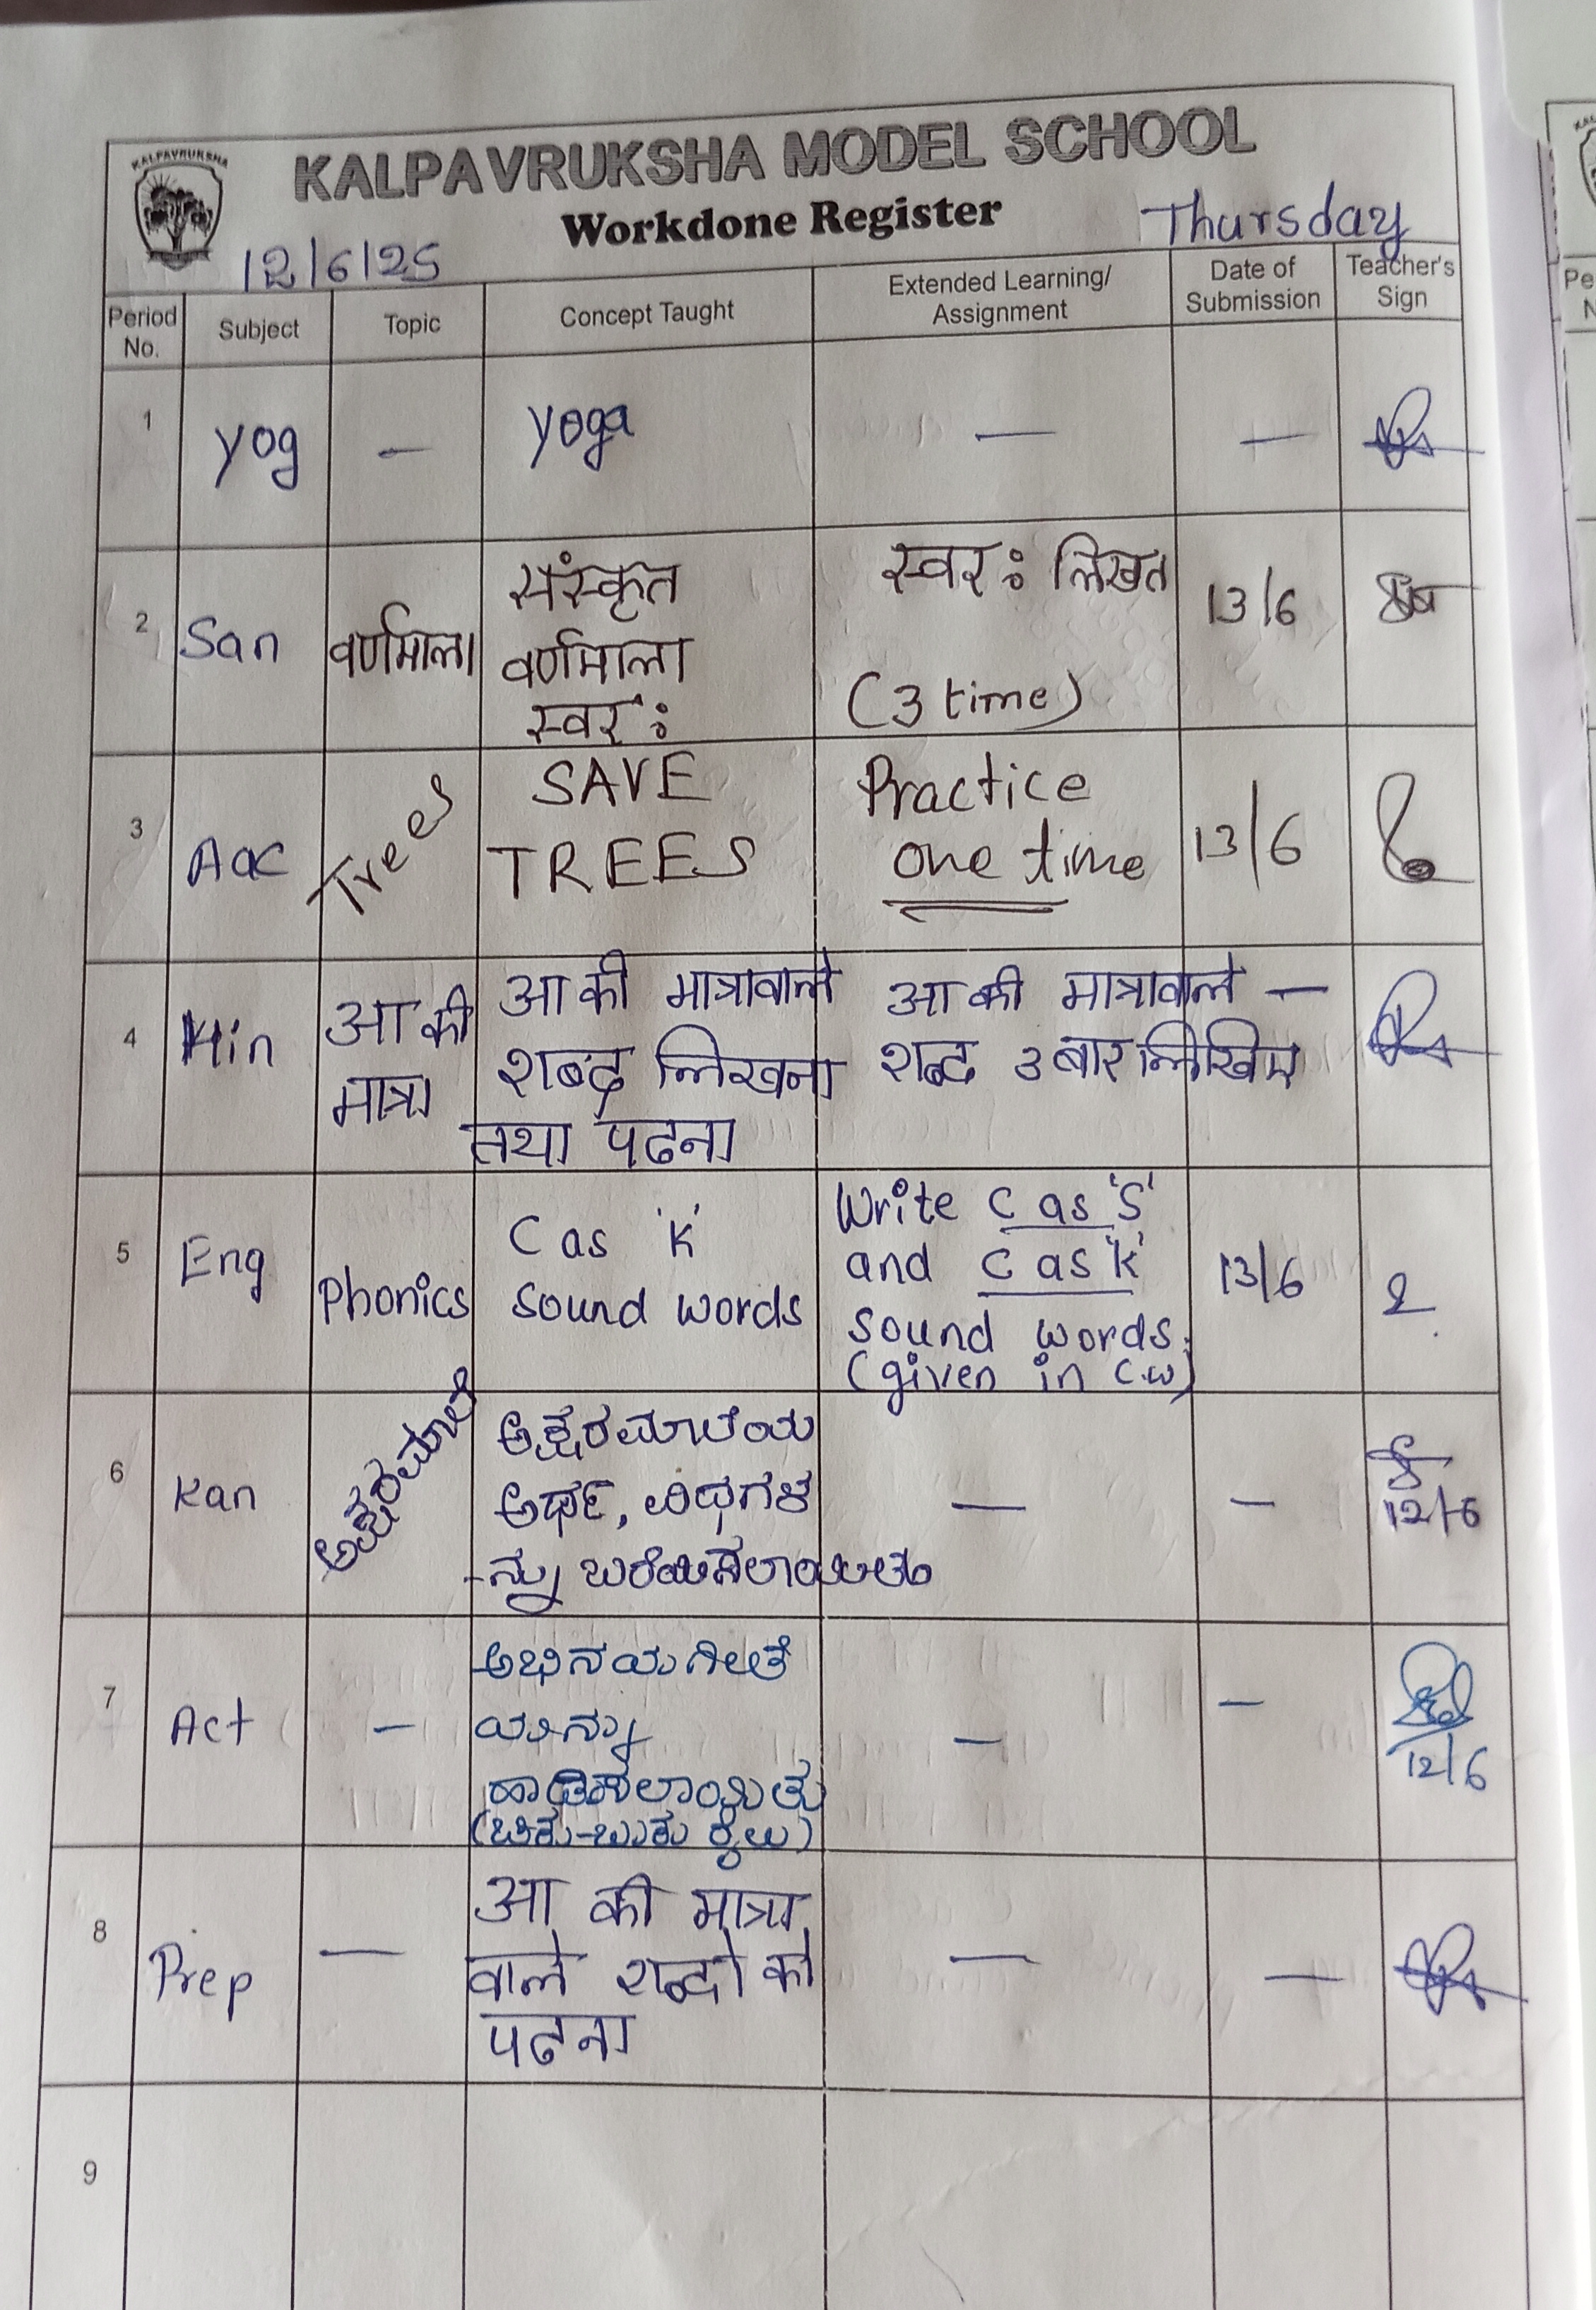 KALPAVRUKSHA
KALPAVRUKSHA MODEL SCHOOL
Workdone Register
12/6/25
Thursday
Period No.
Subject
Topic
Concept Taught
Extended Learning/ Assignment
Date of Submission
Teacher's Sign
1
yog
—
yoga
—
—
2
San
वर्णमाला
संस्कृत
वर्णमाला
स्वर :
स्वर : लिखत
(3 time)
13/6
3
Aac
Trees
SAVE
TREES
Practice
one time
13/6
4
Hin
आ की
मात्रा
आ की मात्रावाले
शब्द लिखना
तथा पढना
आ की मात्रावाले —
शब्द 3 बार लिखिए
5
Eng
Phonics
C as 'K'
Sound words
Write C as 'S'
and C as 'K'
sound words.
(given in C.W)
13/6
6
Kan
ಅಕ್ಷರಮಾಲೆ
ಅಕ್ಷರಮಾಲೆಯ
ಅರ್ಥ, ವಿಧಗಳ
-ನ್ನು ಬರೆಯಿಸಲಾಯಿತು
—
—
12/6
7
Act
—
ಅಭಿನಯಗೀತೆ
ಯನ್ನು
ಹಾಡಿಸಲಾಯಿತು
—
—
12/6
8
Prep
—
आ की मात्रा
वाले शब्दो को
पढना
—
—
9